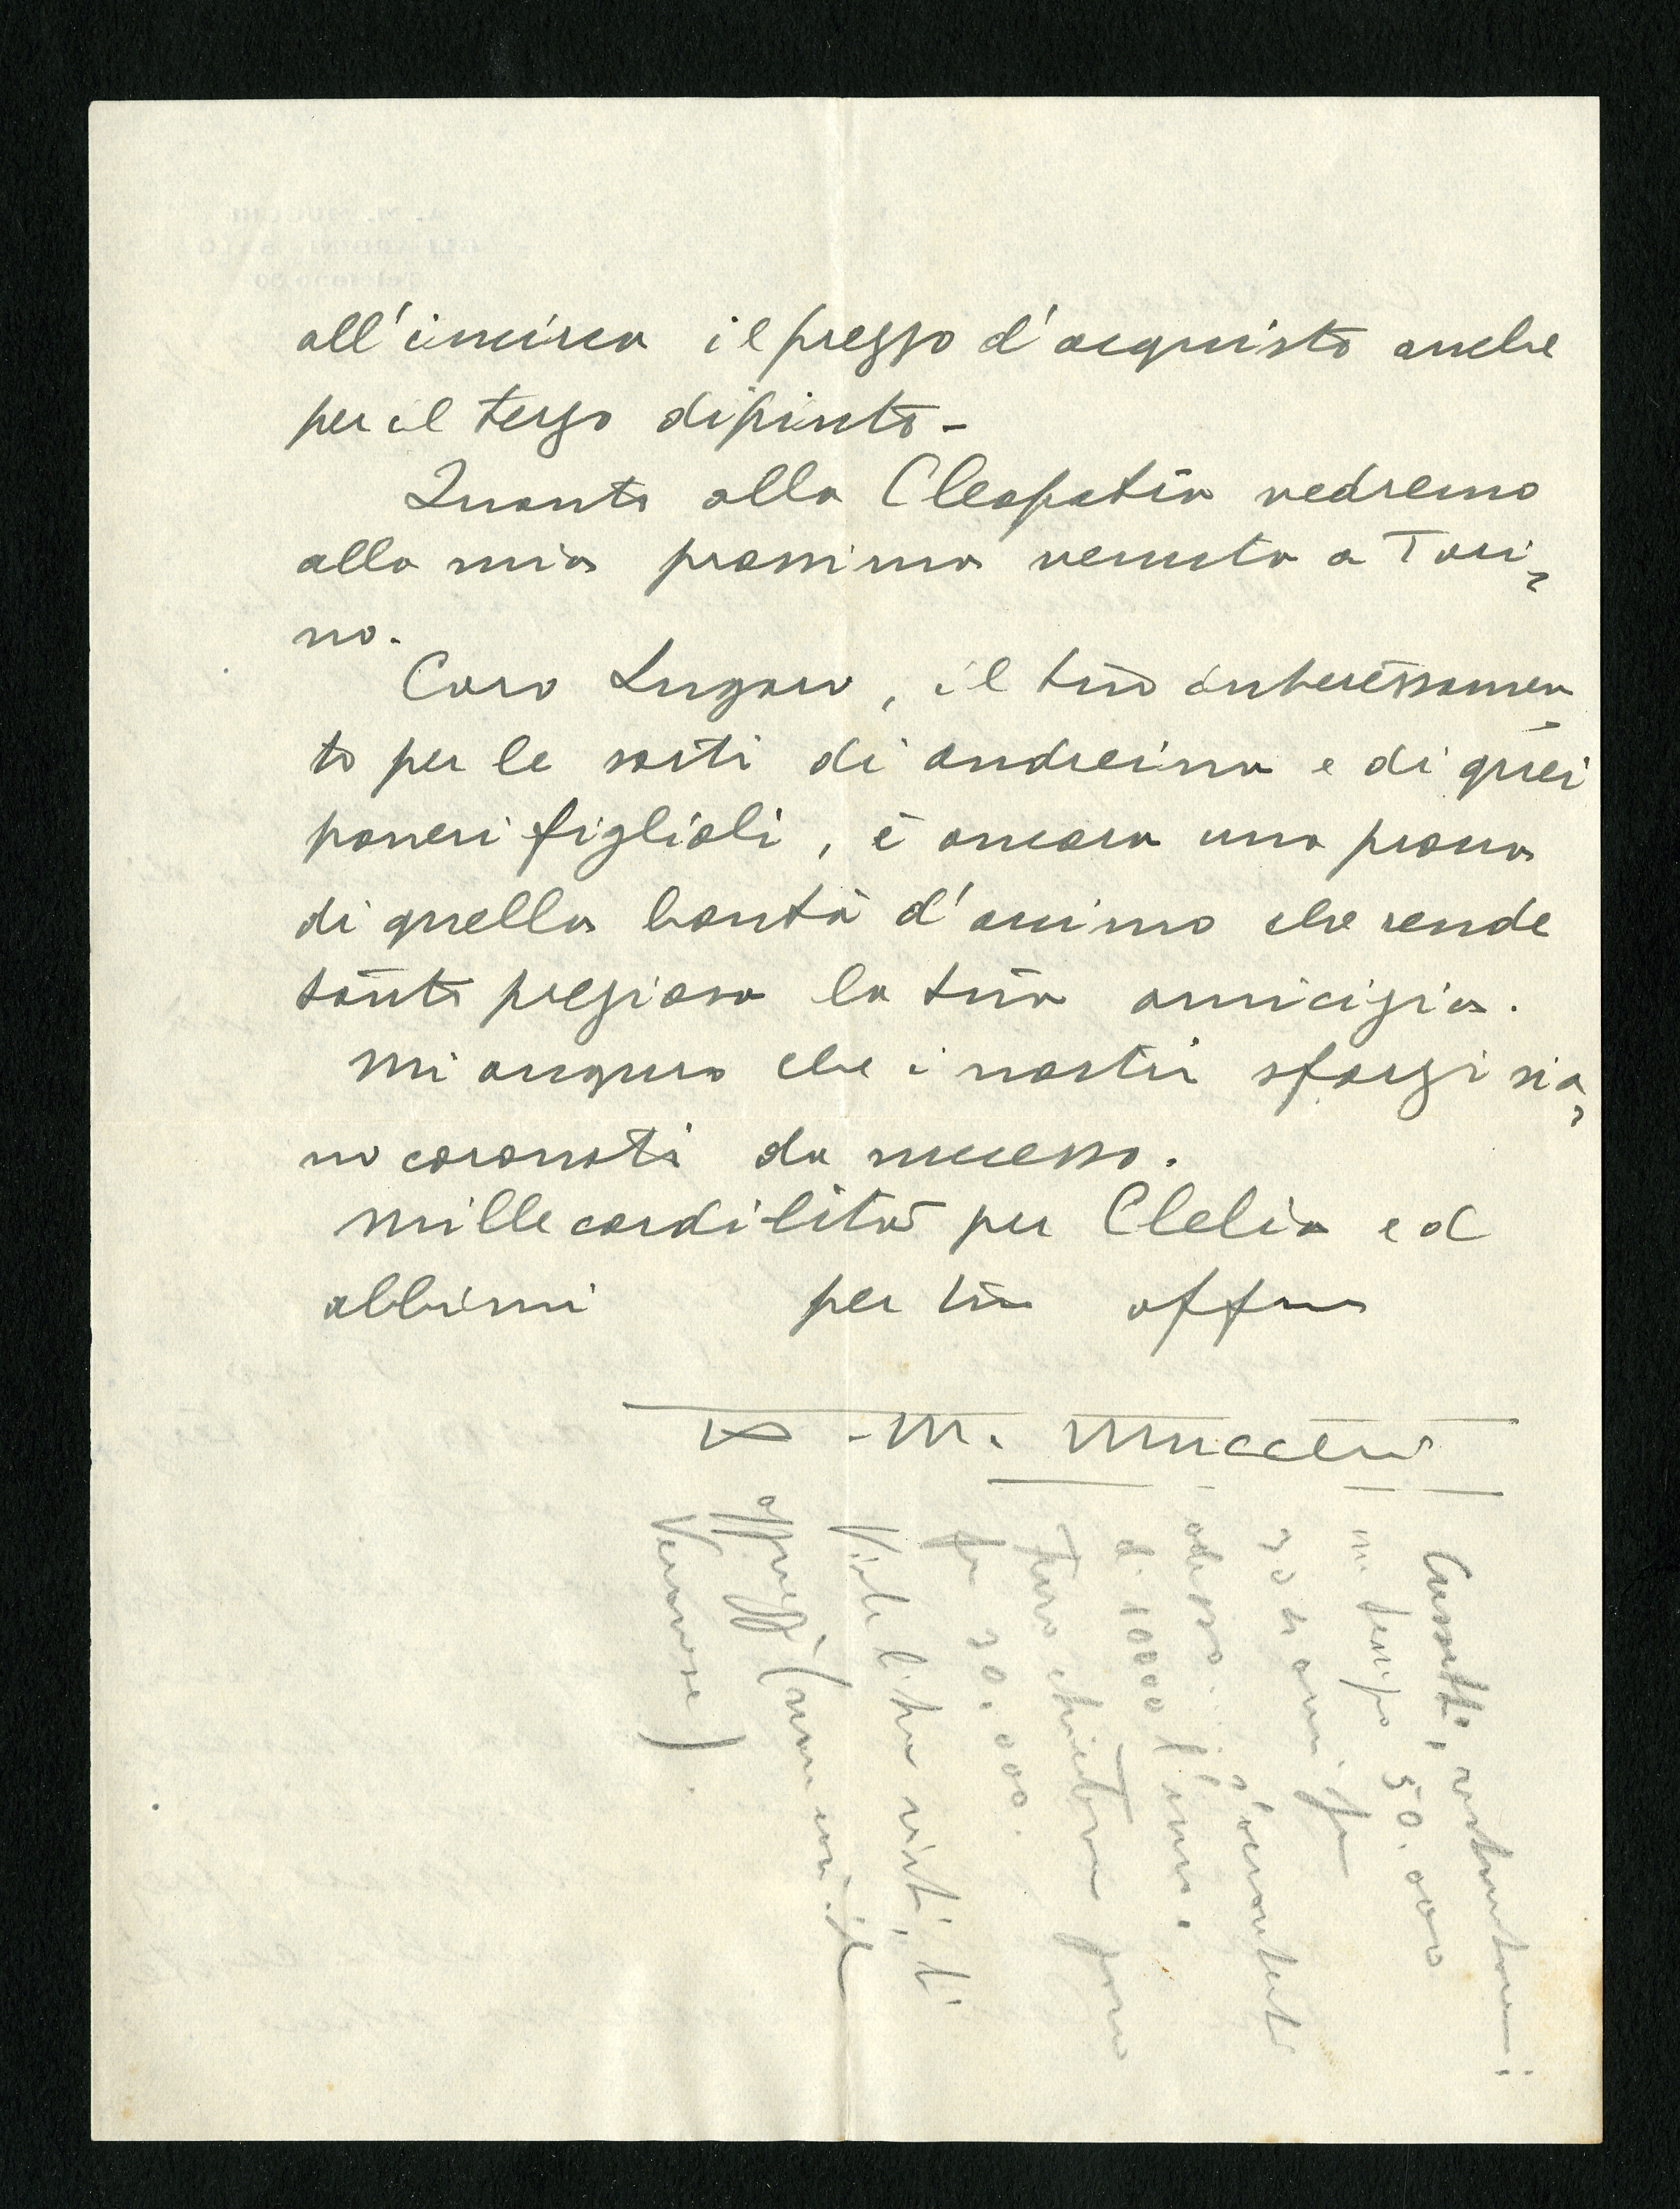 all'incirca il prezzo d'acquisto anche
per il terzo dipinto -
Quanto alla Cleopatra vedremo
alla mia prossima venuta a Tori=
no.
Caro Lugaro, il tuo interessamen=
to per le sorti di andreina e di quei
poveri figlioli, è ancora una prova
di quella bontà d'animo che rende
tanto preziosa la tua amicizia.
Mi auguro che i nostri sforzi sia=
no coronati da successo.
Mille cordilità per Clelia ed
abbimi per tuo affmo
A. M. Mucchi
restauratore:
un tempo 50.000
30 anni fa
adesso:
d. 10000 l'uno.
fr 30.000.
Veronese).